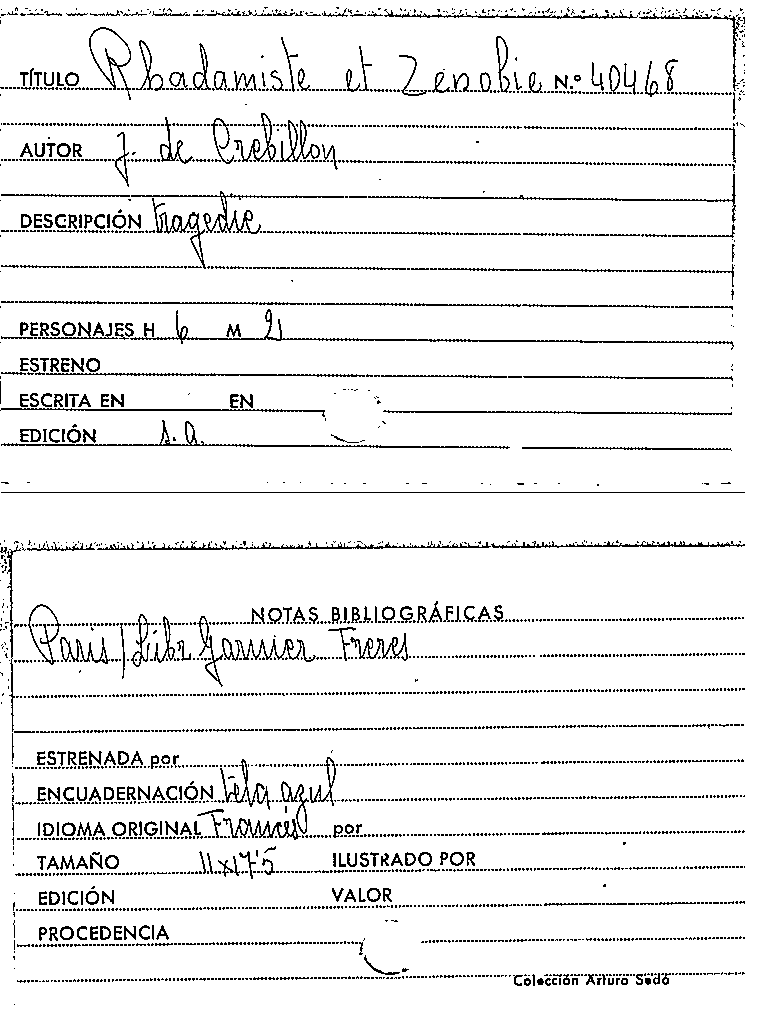 TÍTULO Rhadamiste et Zenobie N.º 40468
AUTOR J. de Crebillon
DESCRIPCIÓN tragedie
PERSONAJES H 6 M 2
ESTRENO
ESCRITA EN EN
EDICIÓN s.a.
NOTAS BIBLIOGRÁFICAS
Paris / Libr Garnier Freres
ESTRENADA por
ENCUADERNACIÓN tela azul
IDIOMA ORIGINAL Francés por
TAMAÑO 11x17'5 ILUSTRADO POR
EDICIÓN VALOR
PROCEDENCIA
Colección Arturo Sedó